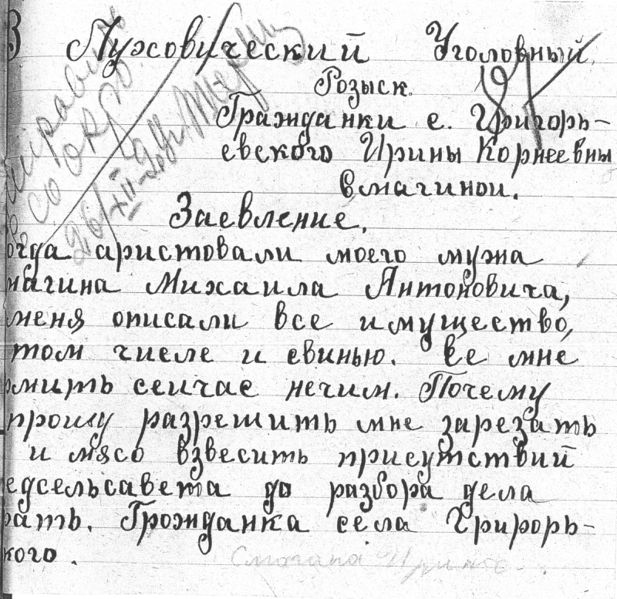 В Лужовический Уголовный
Розыск.
Гражданки с. Григорь-
евского Ирины Корнеевны
Смагиной.
Заевление.
огда аристовали моего мужа
магина Михаила Антоновича,
меня описали все имущество,
том числе и свинью. Ее мне
рмить сеичас нечим. Почему
прошу разрешить мне зарезать
и мясо взвесить присутствий
едсельсавета до разбора дела
рать. Грожданка села Грирорь-
кого. Смагина Ирина